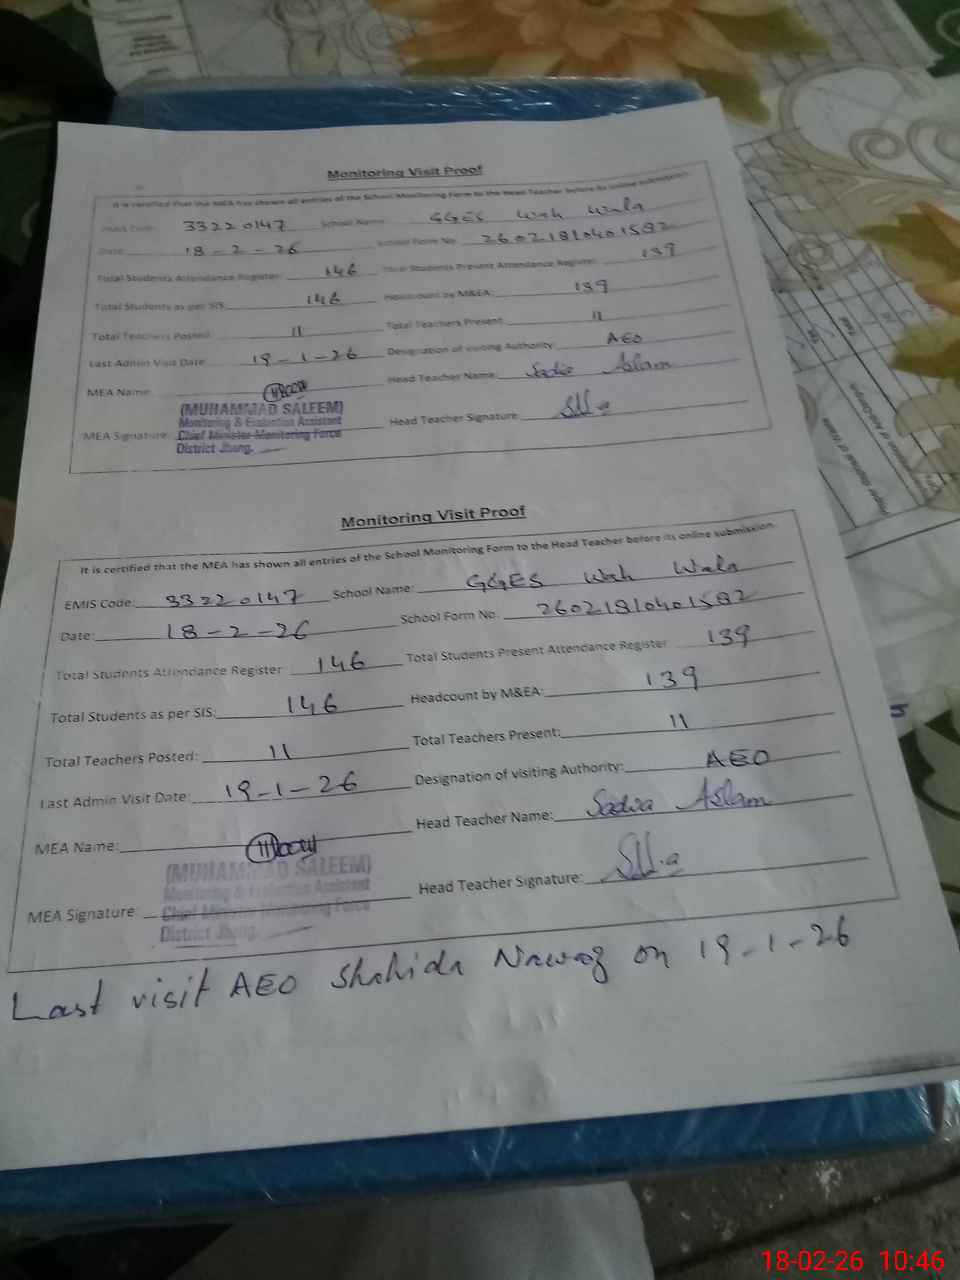 Monitoring Visit Proof
It is certified that the MEA has shown all entries of the School Monitoring Form to the Head Teacher before its online submission.
EMIS Code: 33220147 School Name: GGES Wah Wala
Date: 18-2-26 School Form No. 26021810401582
Total Students Attendance Register: 146 Total Students Present Attendance Register: 139
Total Students as per SIS: 146 Headcount by M&EA: 139
Total Teachers Posted: 11 Total Teachers Present: 11
Last Admin Visit Date: 19-1-26 Designation of visiting Authority: AEO
MEA Name: Head Teacher Name: Sadia Aslam
(MUHAMMAD SALEEM)
Monitoring & Evaluation Assistant
MEA Signature: Chief Minister Monitoring Force Head Teacher Signature:
District Jhang.
Monitoring Visit Proof
It is certified that the MEA has shown all entries of the School Monitoring Form to the Head Teacher before its online submission.
EMIS Code: 33220147 School Name: GGES Wah Wala
Date: 18-2-26 School Form No. 26021810401582
Total Students Attendance Register 146 Total Students Present Attendance Register 139
Total Students as per SIS: 146 Headcount by M&EA: 139
Total Teachers Posted: 11 Total Teachers Present: 11
Last Admin Visit Date: 19-1-26 Designation of visiting Authority: AEO
MEA Name: Head Teacher Name: Sadia Aslam
(MUHAMMAD SALEEM)
Monitoring & Evaluation Assistant
MEA Signature: Chief Minister Monitoring Force Head Teacher Signature:
District Jhang.
Last visit AEO Shahida Nawaz on 19-1-26
18-02-26 10:46